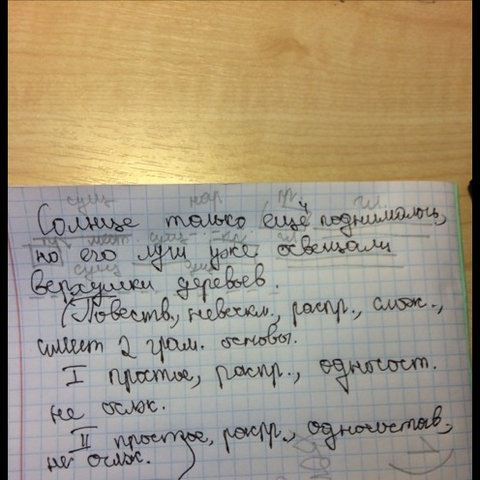 сущ нар. гл.
Солнце только ещё поднималось,
мест. сущ
но его лучи уже освещали
сущ сущ
верхушки деревьев.
(Повеств, невоскл., распр., слож.,
имеет 2 грам. основы.
I простое, распр., односост.
не ослж.
II простое, распр., односостав,
не ослж.